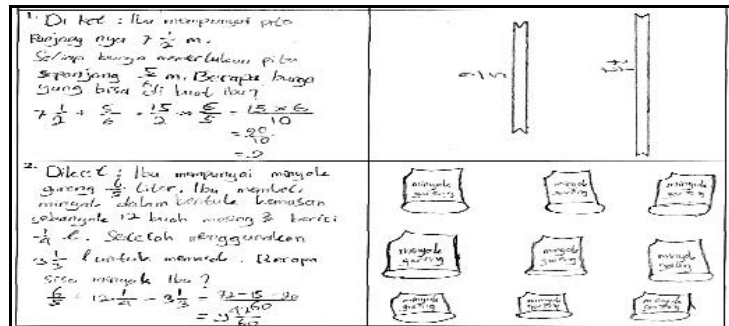 1. Diket : Ibu mempunyai pita
Panjang nya 7 1/2 m.
Setiap bunga memerlukan pita
sepanjang 5/6 m. Berapa bunga
yang bisa di buat Ibu?
7 1/2 ÷ 5/6 = 15/2 × 6/5 = 15 × 6/10
= 90/10
= 9
2. Diket : Ibu mempunyai minyak
goreng 6/5 liter. Ibu membeli
minyak dalam bentuk kemasan
sebanyak 12 buah masing 2 berisi
1/4 l. Setelah menggunakan
3 1/3 l untuk memasak. Berapa
sisa minyak Ibu?
minyak
goreng
minyak
goreng
minyak
goreng
minyak
goreng
minyak
goreng
minyak
goreng
minyak
goreng
minyak
goreng
minyak
goreng